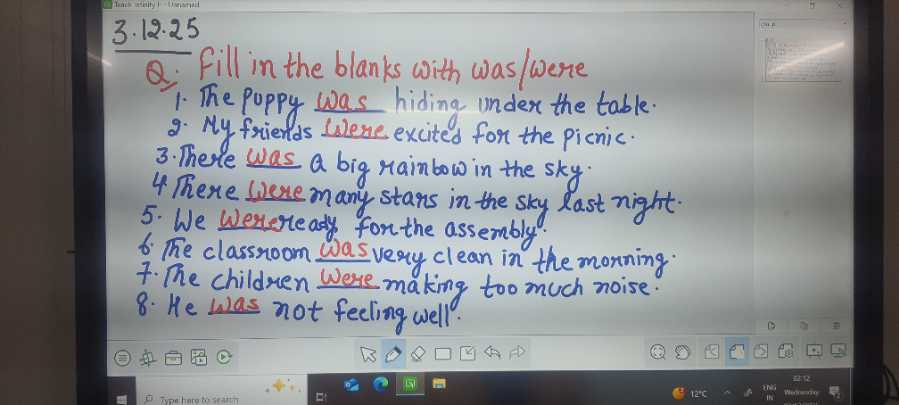 Teach Infinity - Unnamed
3.12.25
Q. Fill in the blanks with was/were
1. The puppy was hiding under the table.
2. My friends were excited for the picnic.
3. There was a big rainbow in the sky.
4 There were many stars in the sky last night.
5. We were ready for the assembly.
6. The classroom was very clean in the morning.
7. The children were making too much noise.
8. He was not feeling well.
Type here to search
12°C
ENG
IN
02:12
Wednesday